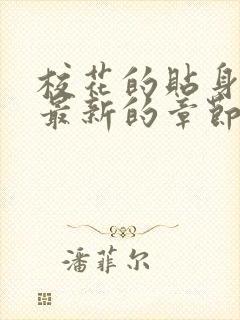 校花的貼身
最新的章節
潘菲尔